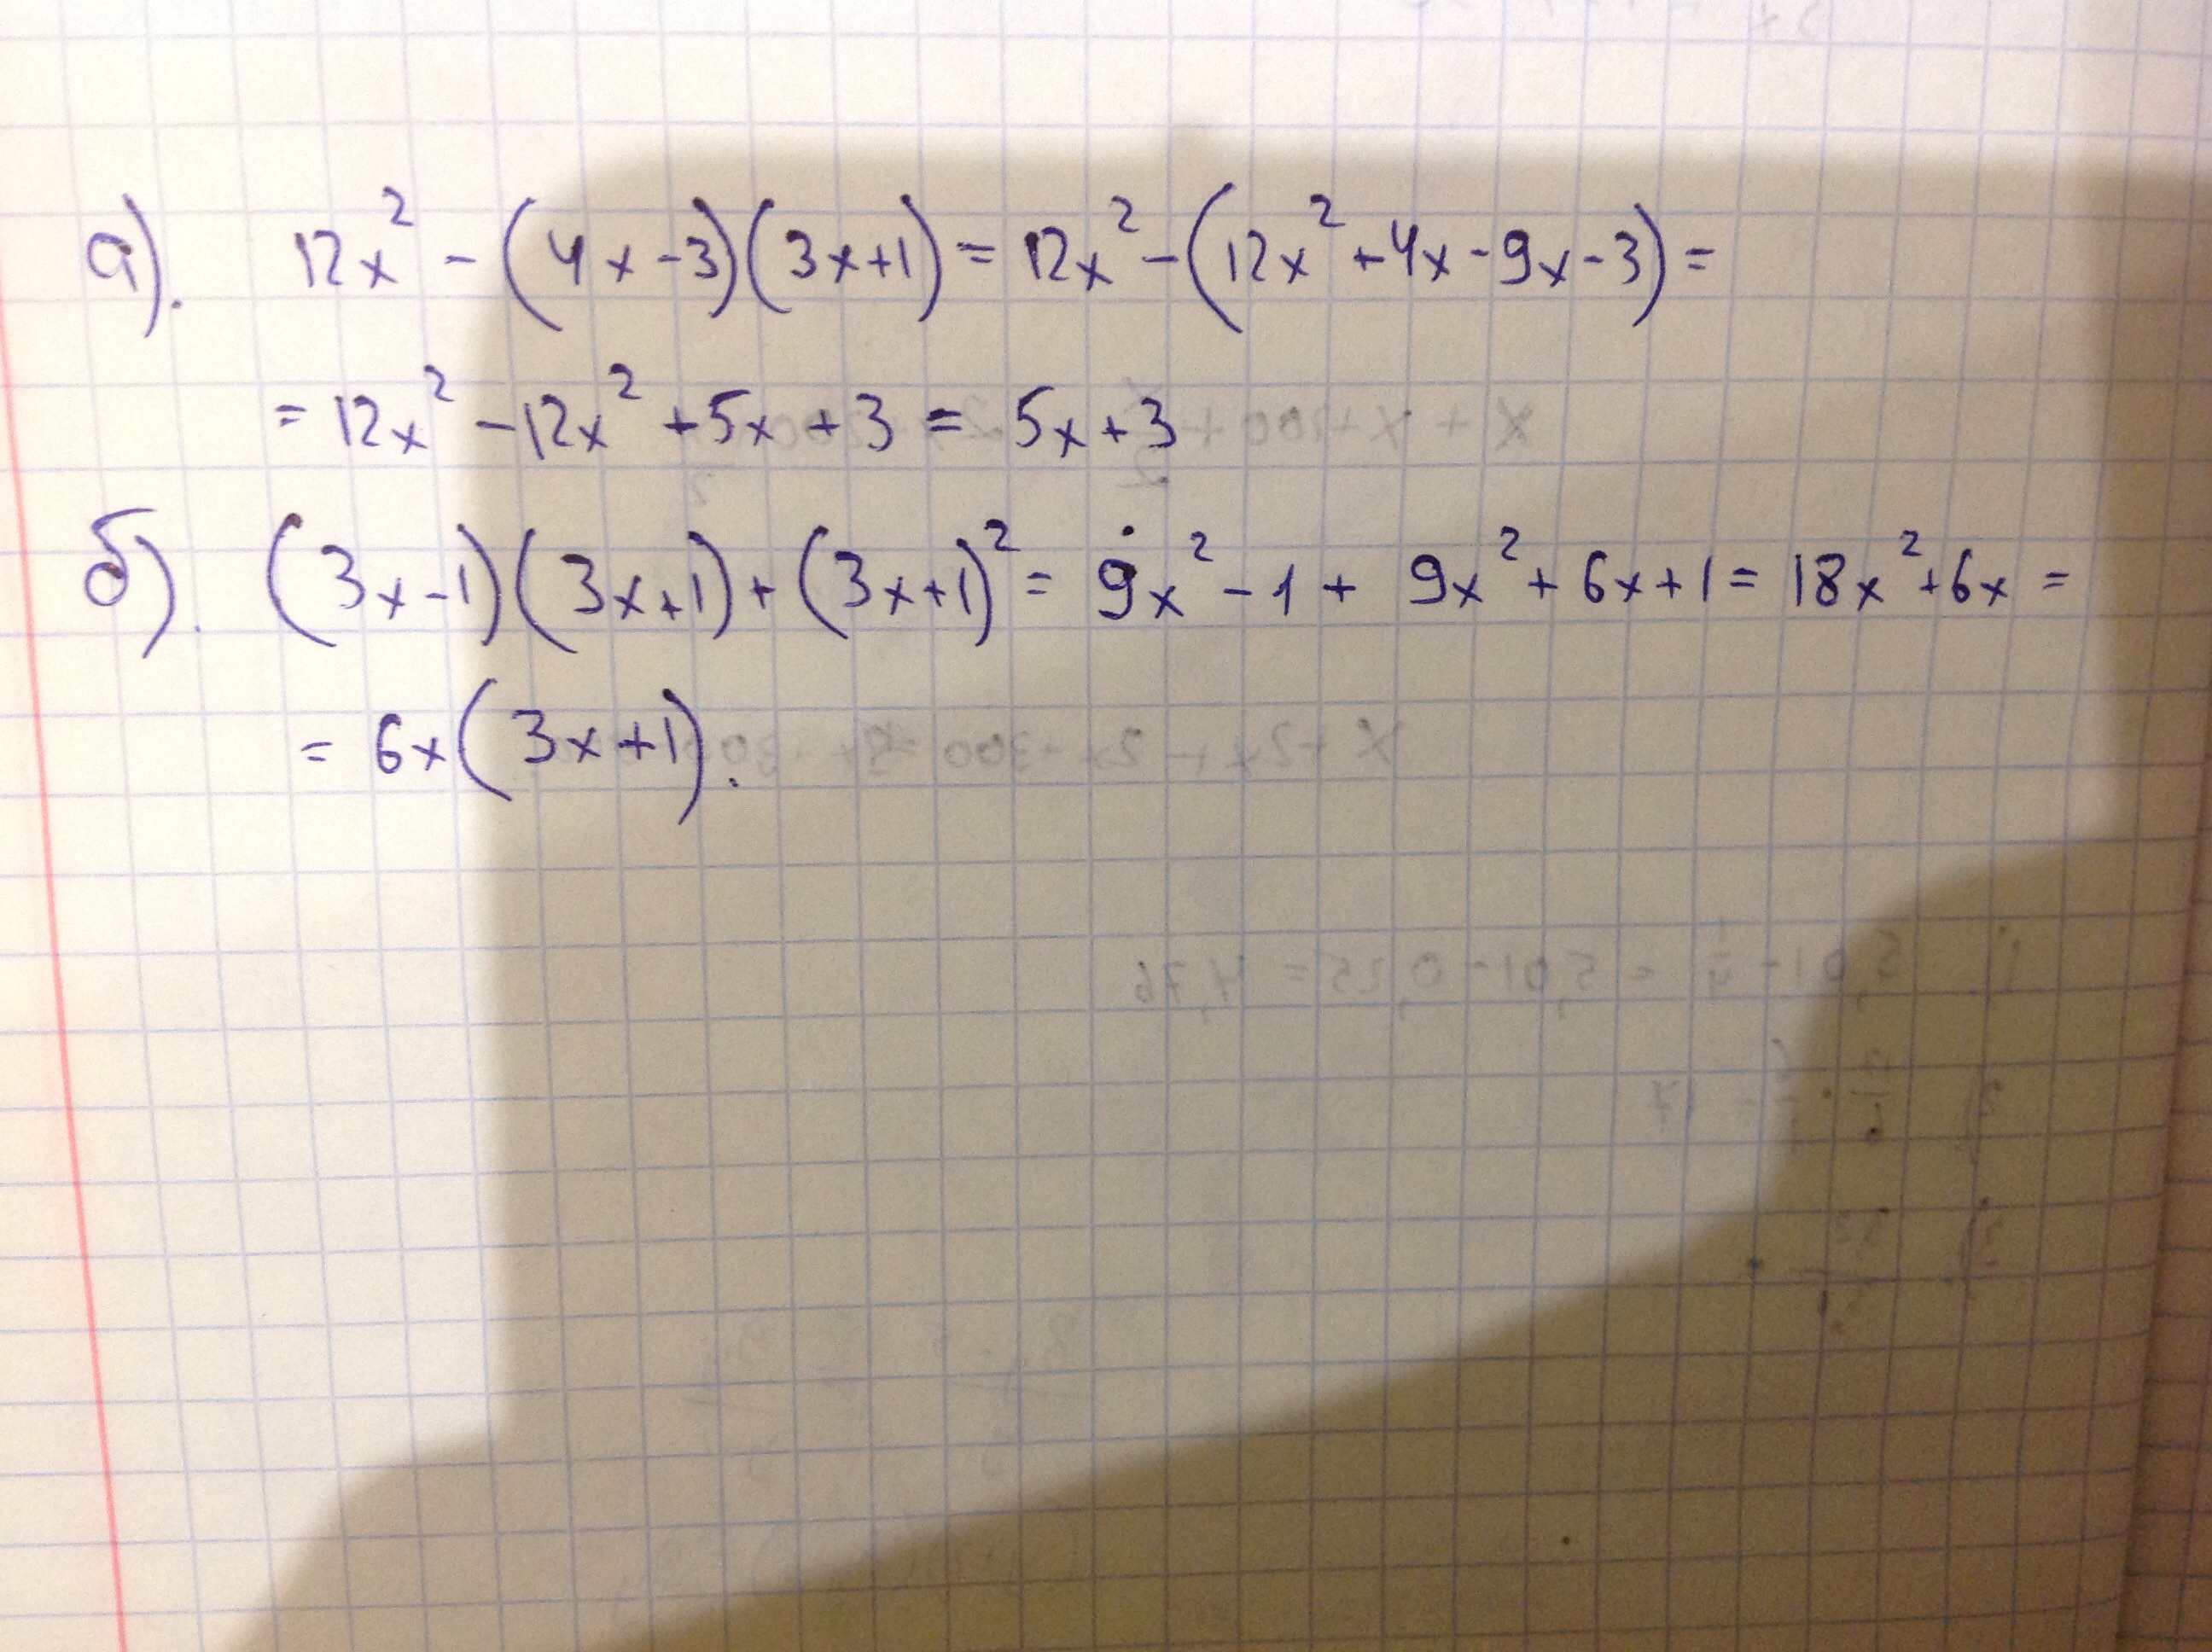 а). 12x² - (4x-3)(3x+1) = 12x² - (12x² + 4x - 9x - 3) =
= 12x² - 12x² + 5x + 3 = 5x + 3
б). (3x-1)(3x+1) + (3x+1)² = 9x² - 1 + 9x² + 6x + 1 = 18x² + 6x =
= 6x(3x+1).
5,01 - 1/4 = 5,01 - 0,25 = 4,76